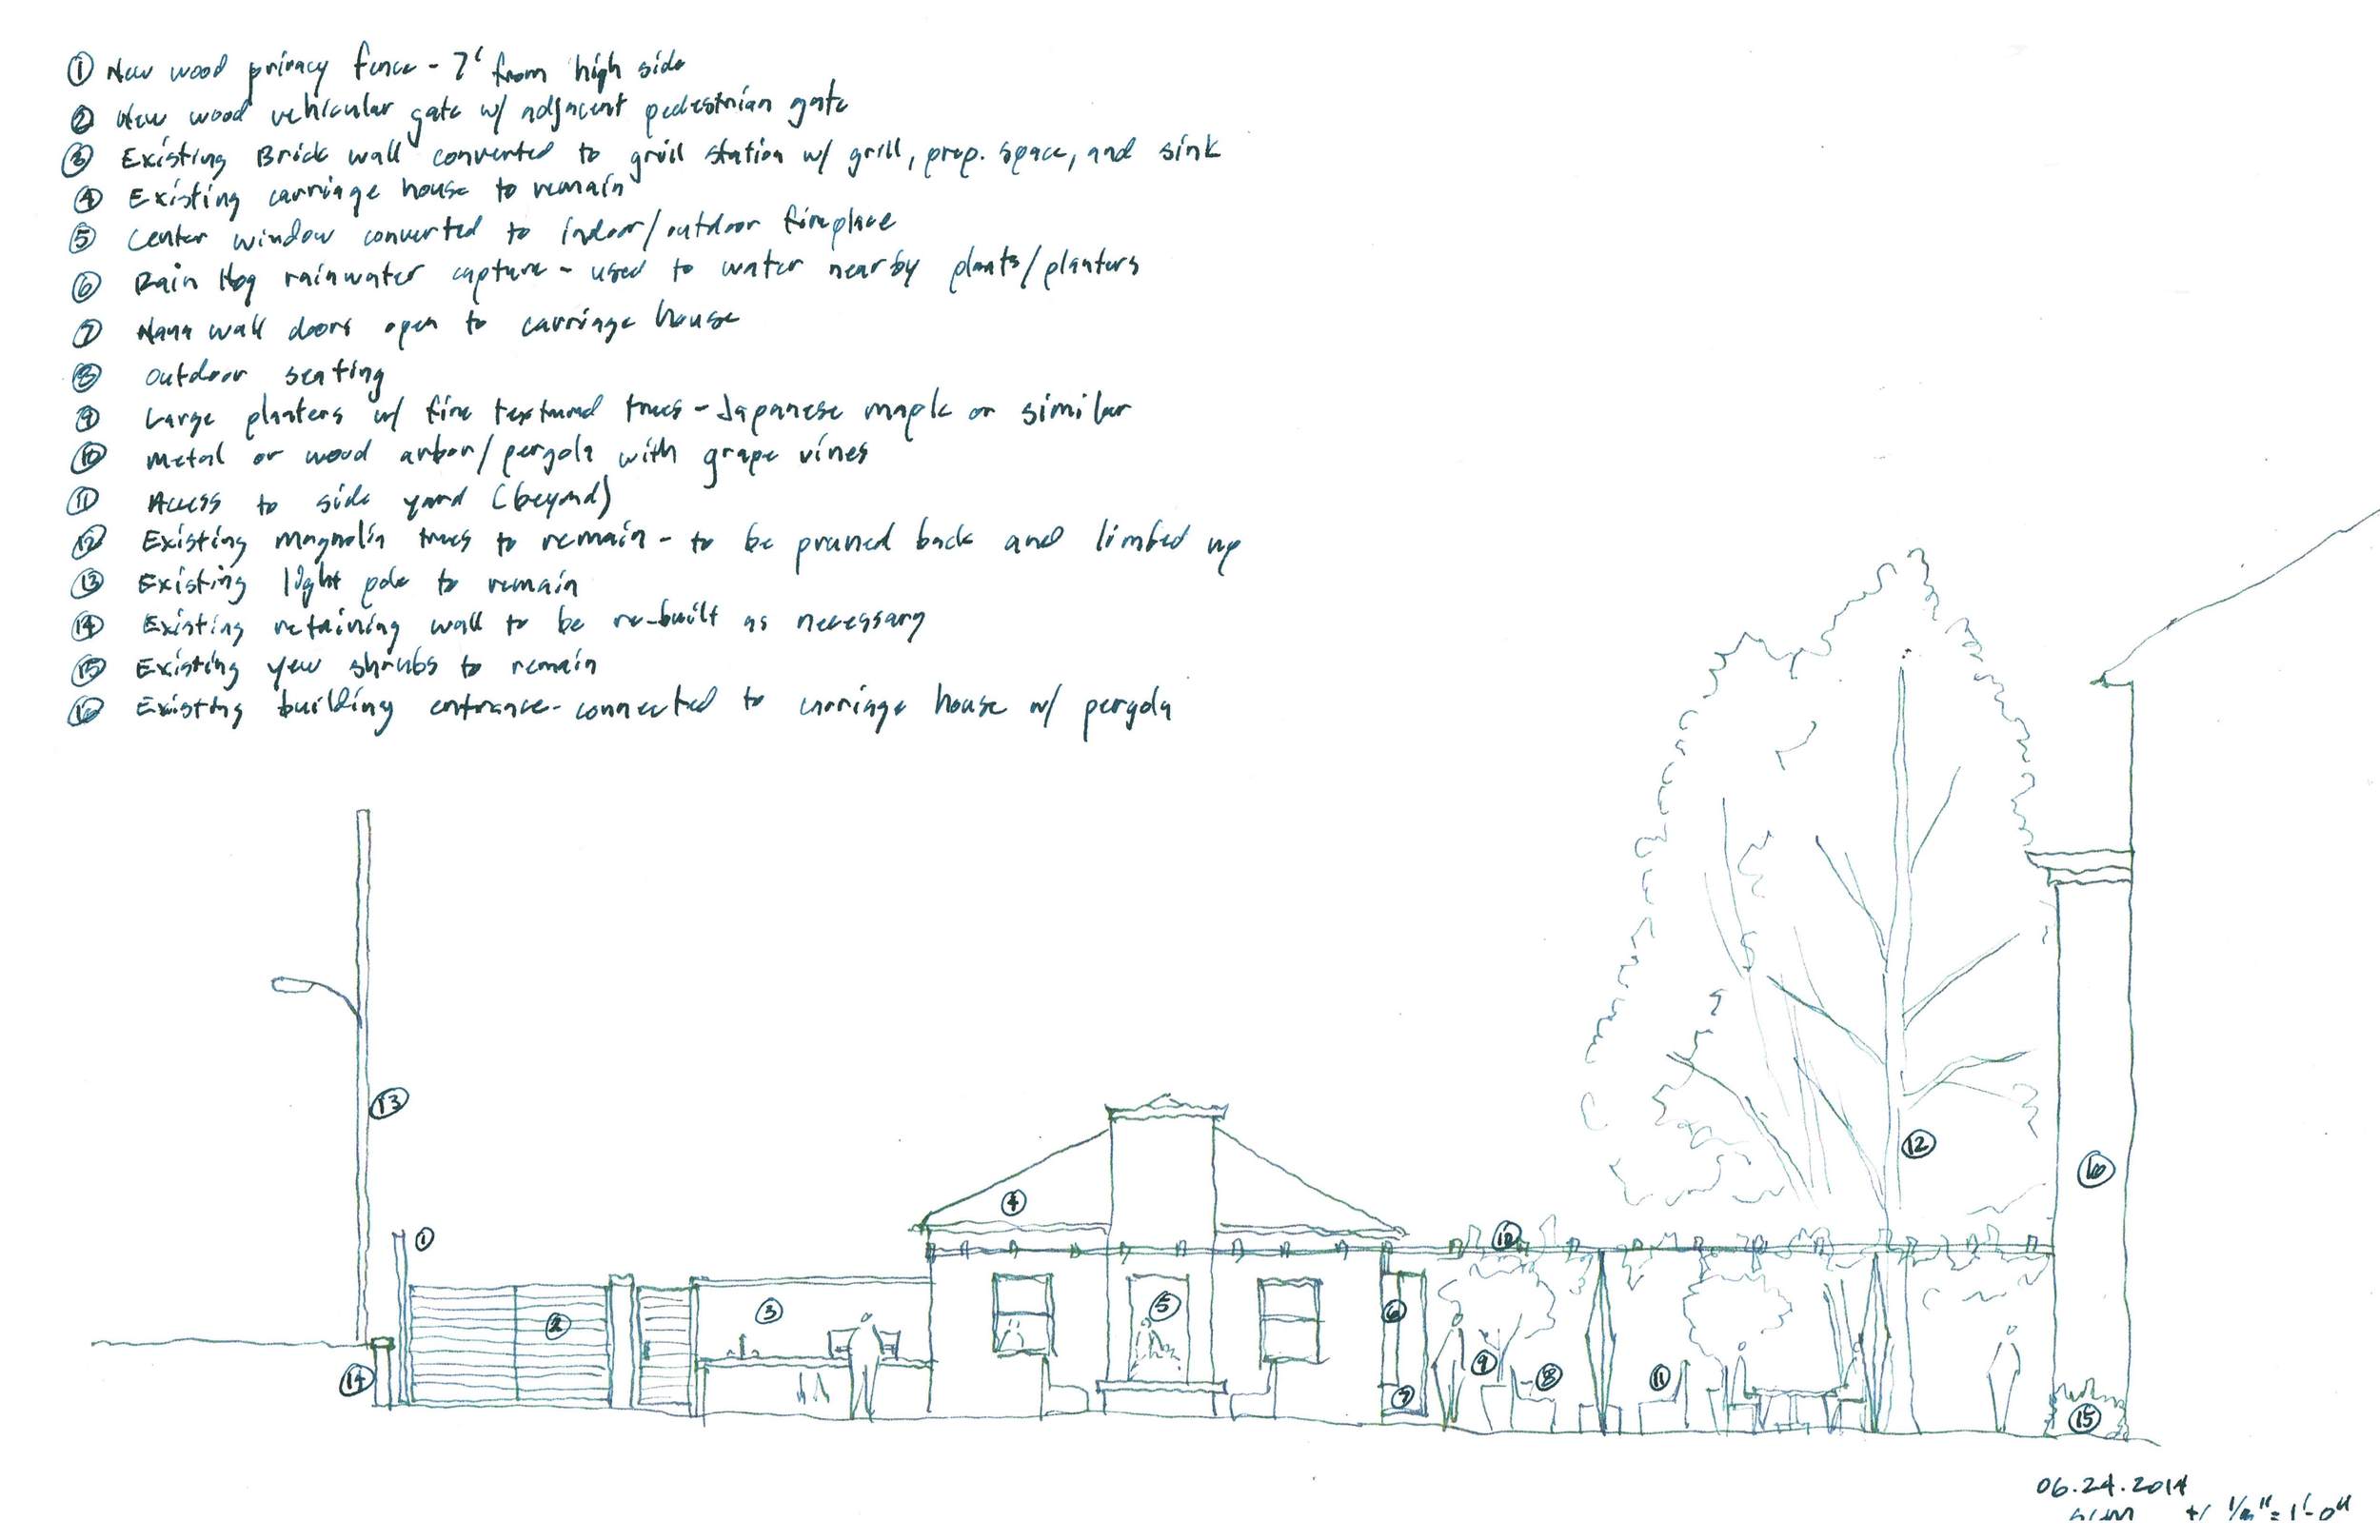 ① New wood privacy fence - 7' from high side
② New wood vehicular gate w/ adjacent pedestrian gate
③ Existing Brick wall converted to grill station w/ grill, prep. space, and sink
④ Existing carriage house to remain
⑤ Center window converted to indoor/outdoor fireplace
⑥ Rain Hog rainwater capture - used to water nearby plants/planters
⑦ Nana wall doors open to carriage house
⑧ outdoor seating
⑨ Large planters w/ fine textured trees - Japanese maple or similar
⑩ Metal or wood arbor/pergola with grape vines
⑪ Access to side yard (beyond)
⑫ Existing magnolia trees to remain - to be pruned back and limbed up
⑬ Existing light pole to remain
⑭ Existing retaining wall to be re-built as necessary
⑮ Existing yew shrubs to remain
⑯ Existing building entrance - connected to carriage house w/ pergola
⑬
⑫
⑯
④
①
⑩
②
③
⑤
⑥
⑭
⑨
⑧
⑪
⑦
⑮
06.24.2014
+/- 1/8"=1'-0"